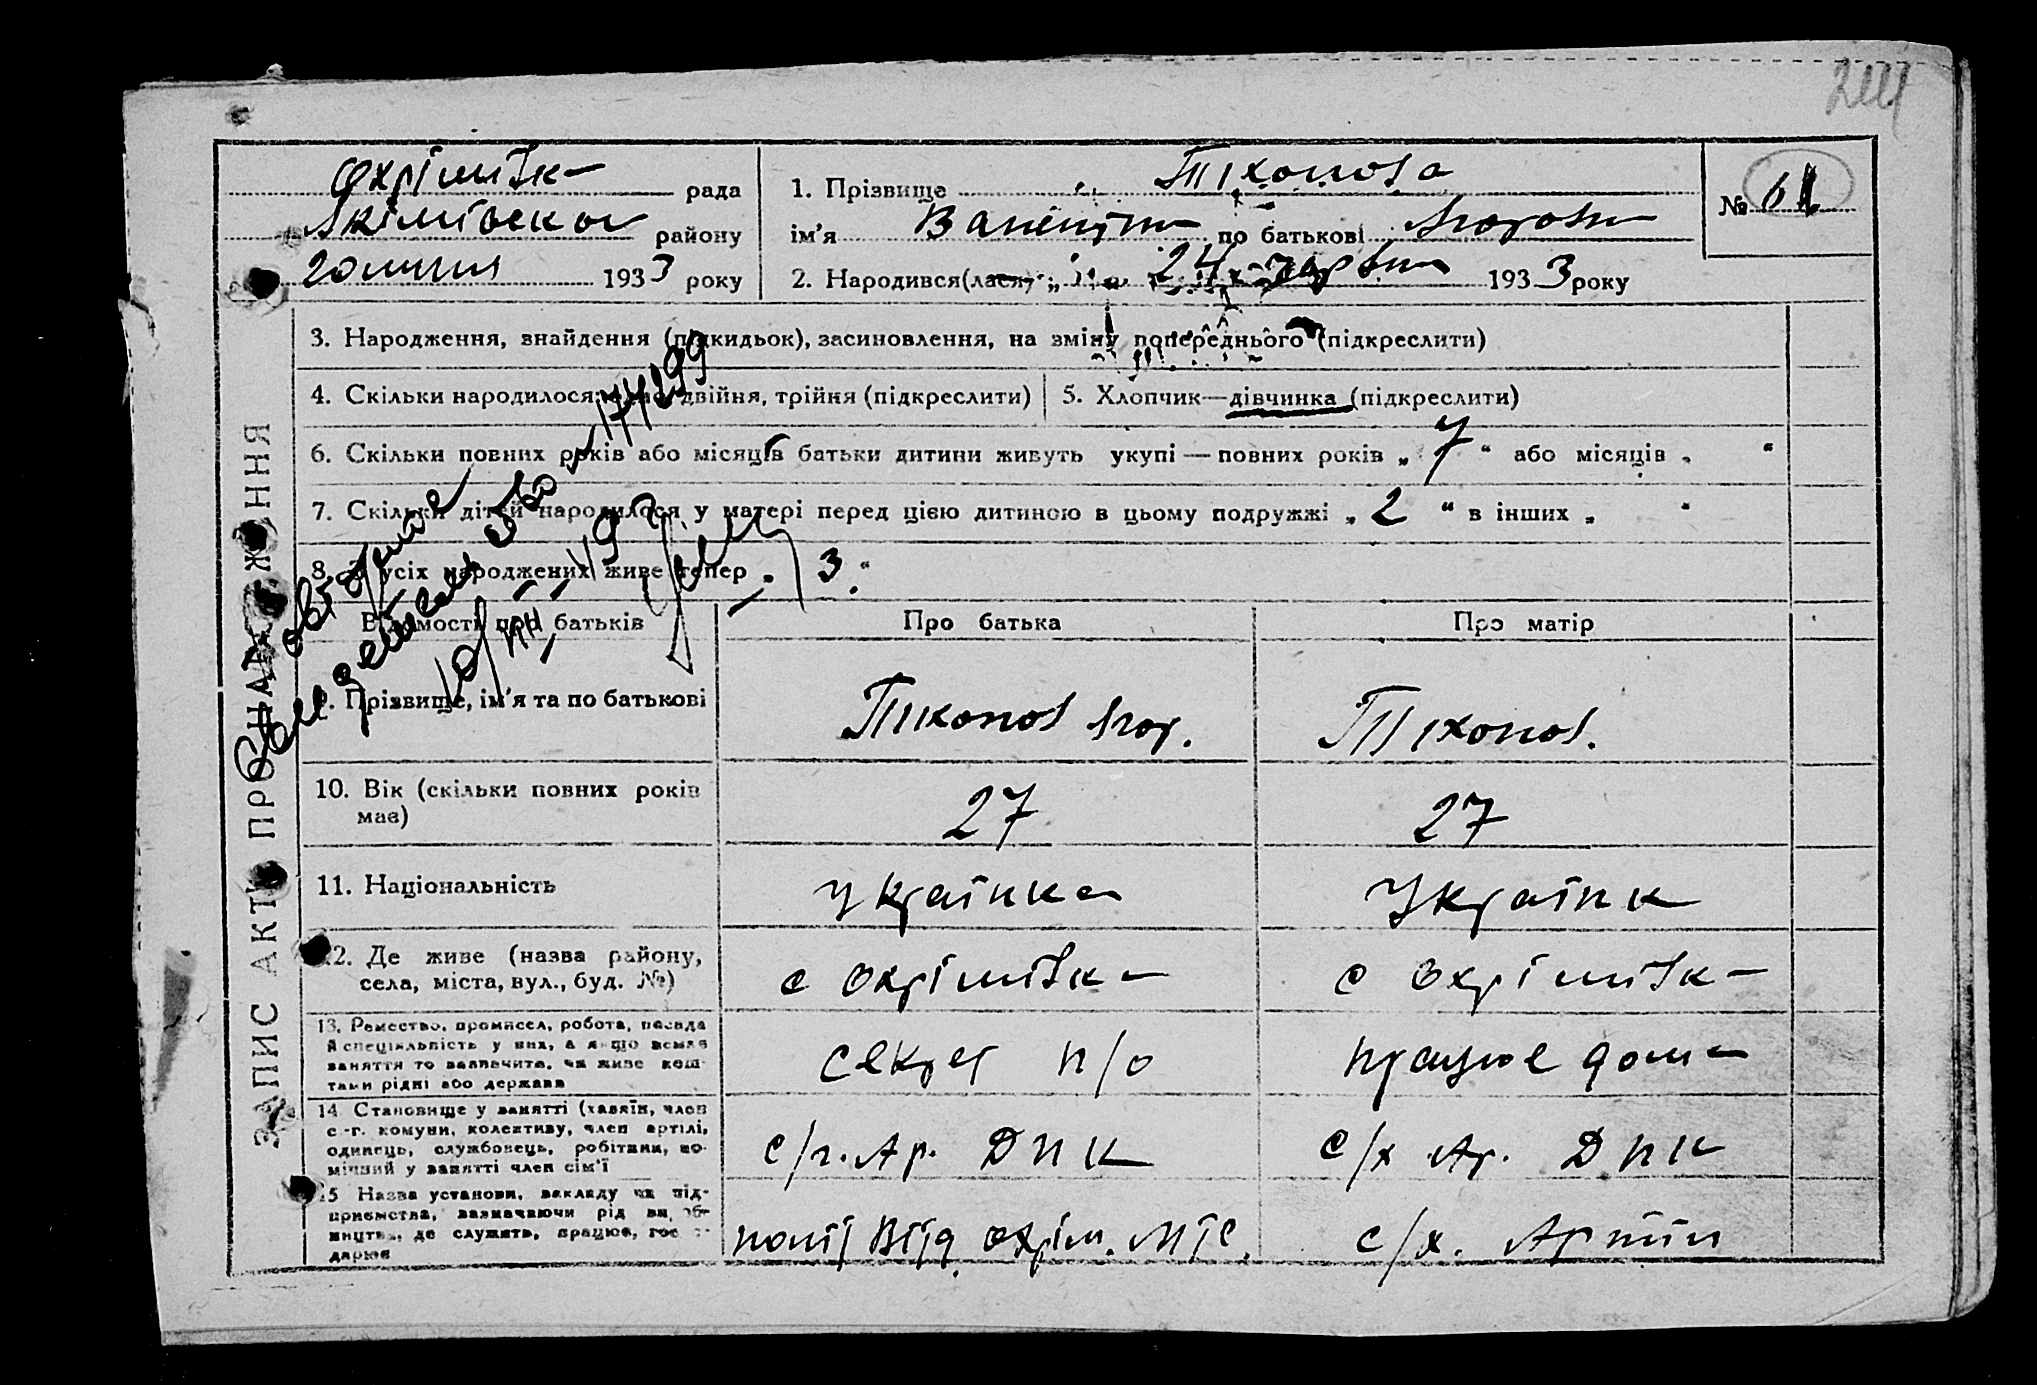 244
Охрімівк рада
Якімівськой району
20 липня 1933 року
1. Прізвище Тіхонова
ім'я Валентин по батькові
2. Народився(лася) „ 24 червня 1933 року
№ 61
ЗАПИС АКТУ ПРО НАРОДЖЕННЯ
3. Народження, знайдення (підкидьок), засиновлення, на зміну попереднього (підкреслити)
4. Скільки народилося: одно, двійня, трійня (підкреслити)
5. Хлопчик—дівчинка (підкреслити)
6. Скільки повних років або місяців батьки дитини живуть укупі — повних років „ 7 “ або місяців „ “
7. Скільки дітей народилося у матері перед цією дитиною в цьому подружжі „ 2 “ в інших „ “
8. З усіх народжених живе тепер „ 3 “
Відомості про батьків
Про батька
Про матір
9. Прізвище, ім'я та по батькові
Тіхонов
Тіхонов.
10. Вік (скільки повних років має)
27
27
11. Національність
Українка
Українк
12. Де живе (назва району,
села, міста, вул., буд. №)
с Охрімівк
с Охрімівк
13. Ремество, промисел, робота, посада
й спеціяльність у них, а якщо немає
заняття то зазначити, чи живе кош-
тами рідні або держави
секрет п/о
працює дома
14. Становище у занятті (хазяїн, член
с.-г. комуни, колективу, член артілі,
одинець, службовець, робітник, по-
мічний у занятті член сім'ї
с/г. Ар. ДПК
с/х Ар. ДПК
15 Назва установи, закладу чи під-
приємства, зазначаючи рід виробництва, де служить, працює, господарює
політвід Охрім. МТС.
с/х. Артіл